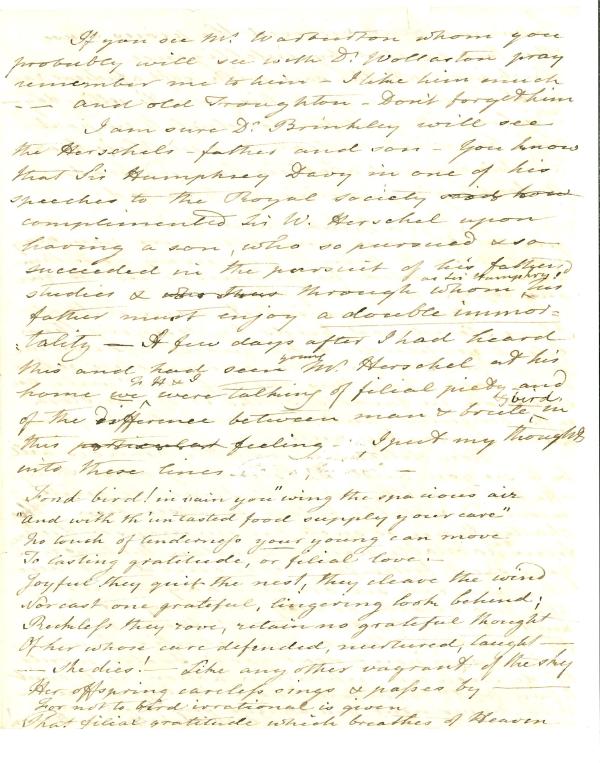 If you see Mr. Warburton whom you
probably will see with Dr. Wollaston pray
remember me to him – I like him much
– – and old Troughton – Don't forget him
I am sure Dr. Brinkley will see
the Herschels – father and son – You know
that Sir Humphrey Davy in one of his
speeches to the Royal Society said how
complimented Sir W. Herschel upon
having a son, who so pursued & so
succeeded in the pursuit of his father's
studies & who thus through whom as Sir Humphry sd his
father must enjoy a double immor-
-tality – A few days after I had heard
this and had seen young Mr. Herschel at his
home we Sr H & I were talking of filial piety and
of the difference between man & brute & bird in
this particular feeling I put my thoughts
into these lines –
Fond bird! in vain you "wing the spacious air
"And with th' untasted food supply your care"
No touch of tenderness your young can move
To lasting gratitude, or filial love. –
Joyful they quit the nest, they cleave the wind
Nor cast one grateful, lingering look behind;
Reckless they rove, retain no grateful thought
Of her whose care defended, nurtured, taught –
– She dies! – Like any other vagrant of the sky
Her offspring careless sings & passes by –
For not to bird irrational is given
That filial gratitude which breathes of Heaven